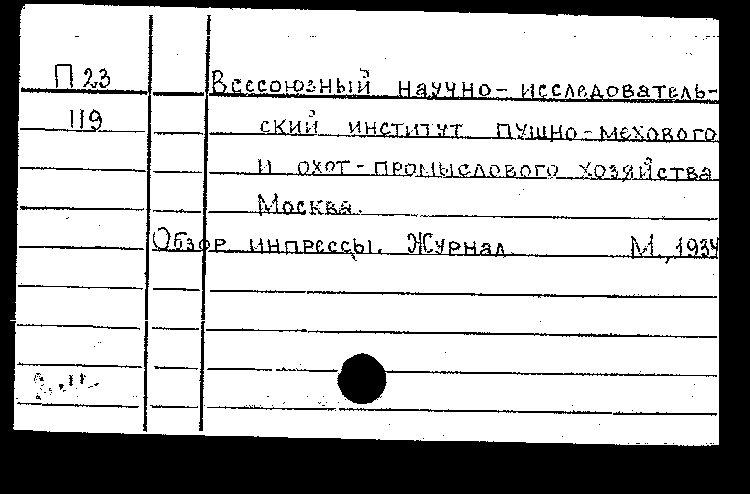 П 23 Всесоюзный научно-исследователь-
119 ский институт пушно-мехового
и охот-промыслового хозяйства
Москва.
Обзор инпрессы. Журнал М., 1934